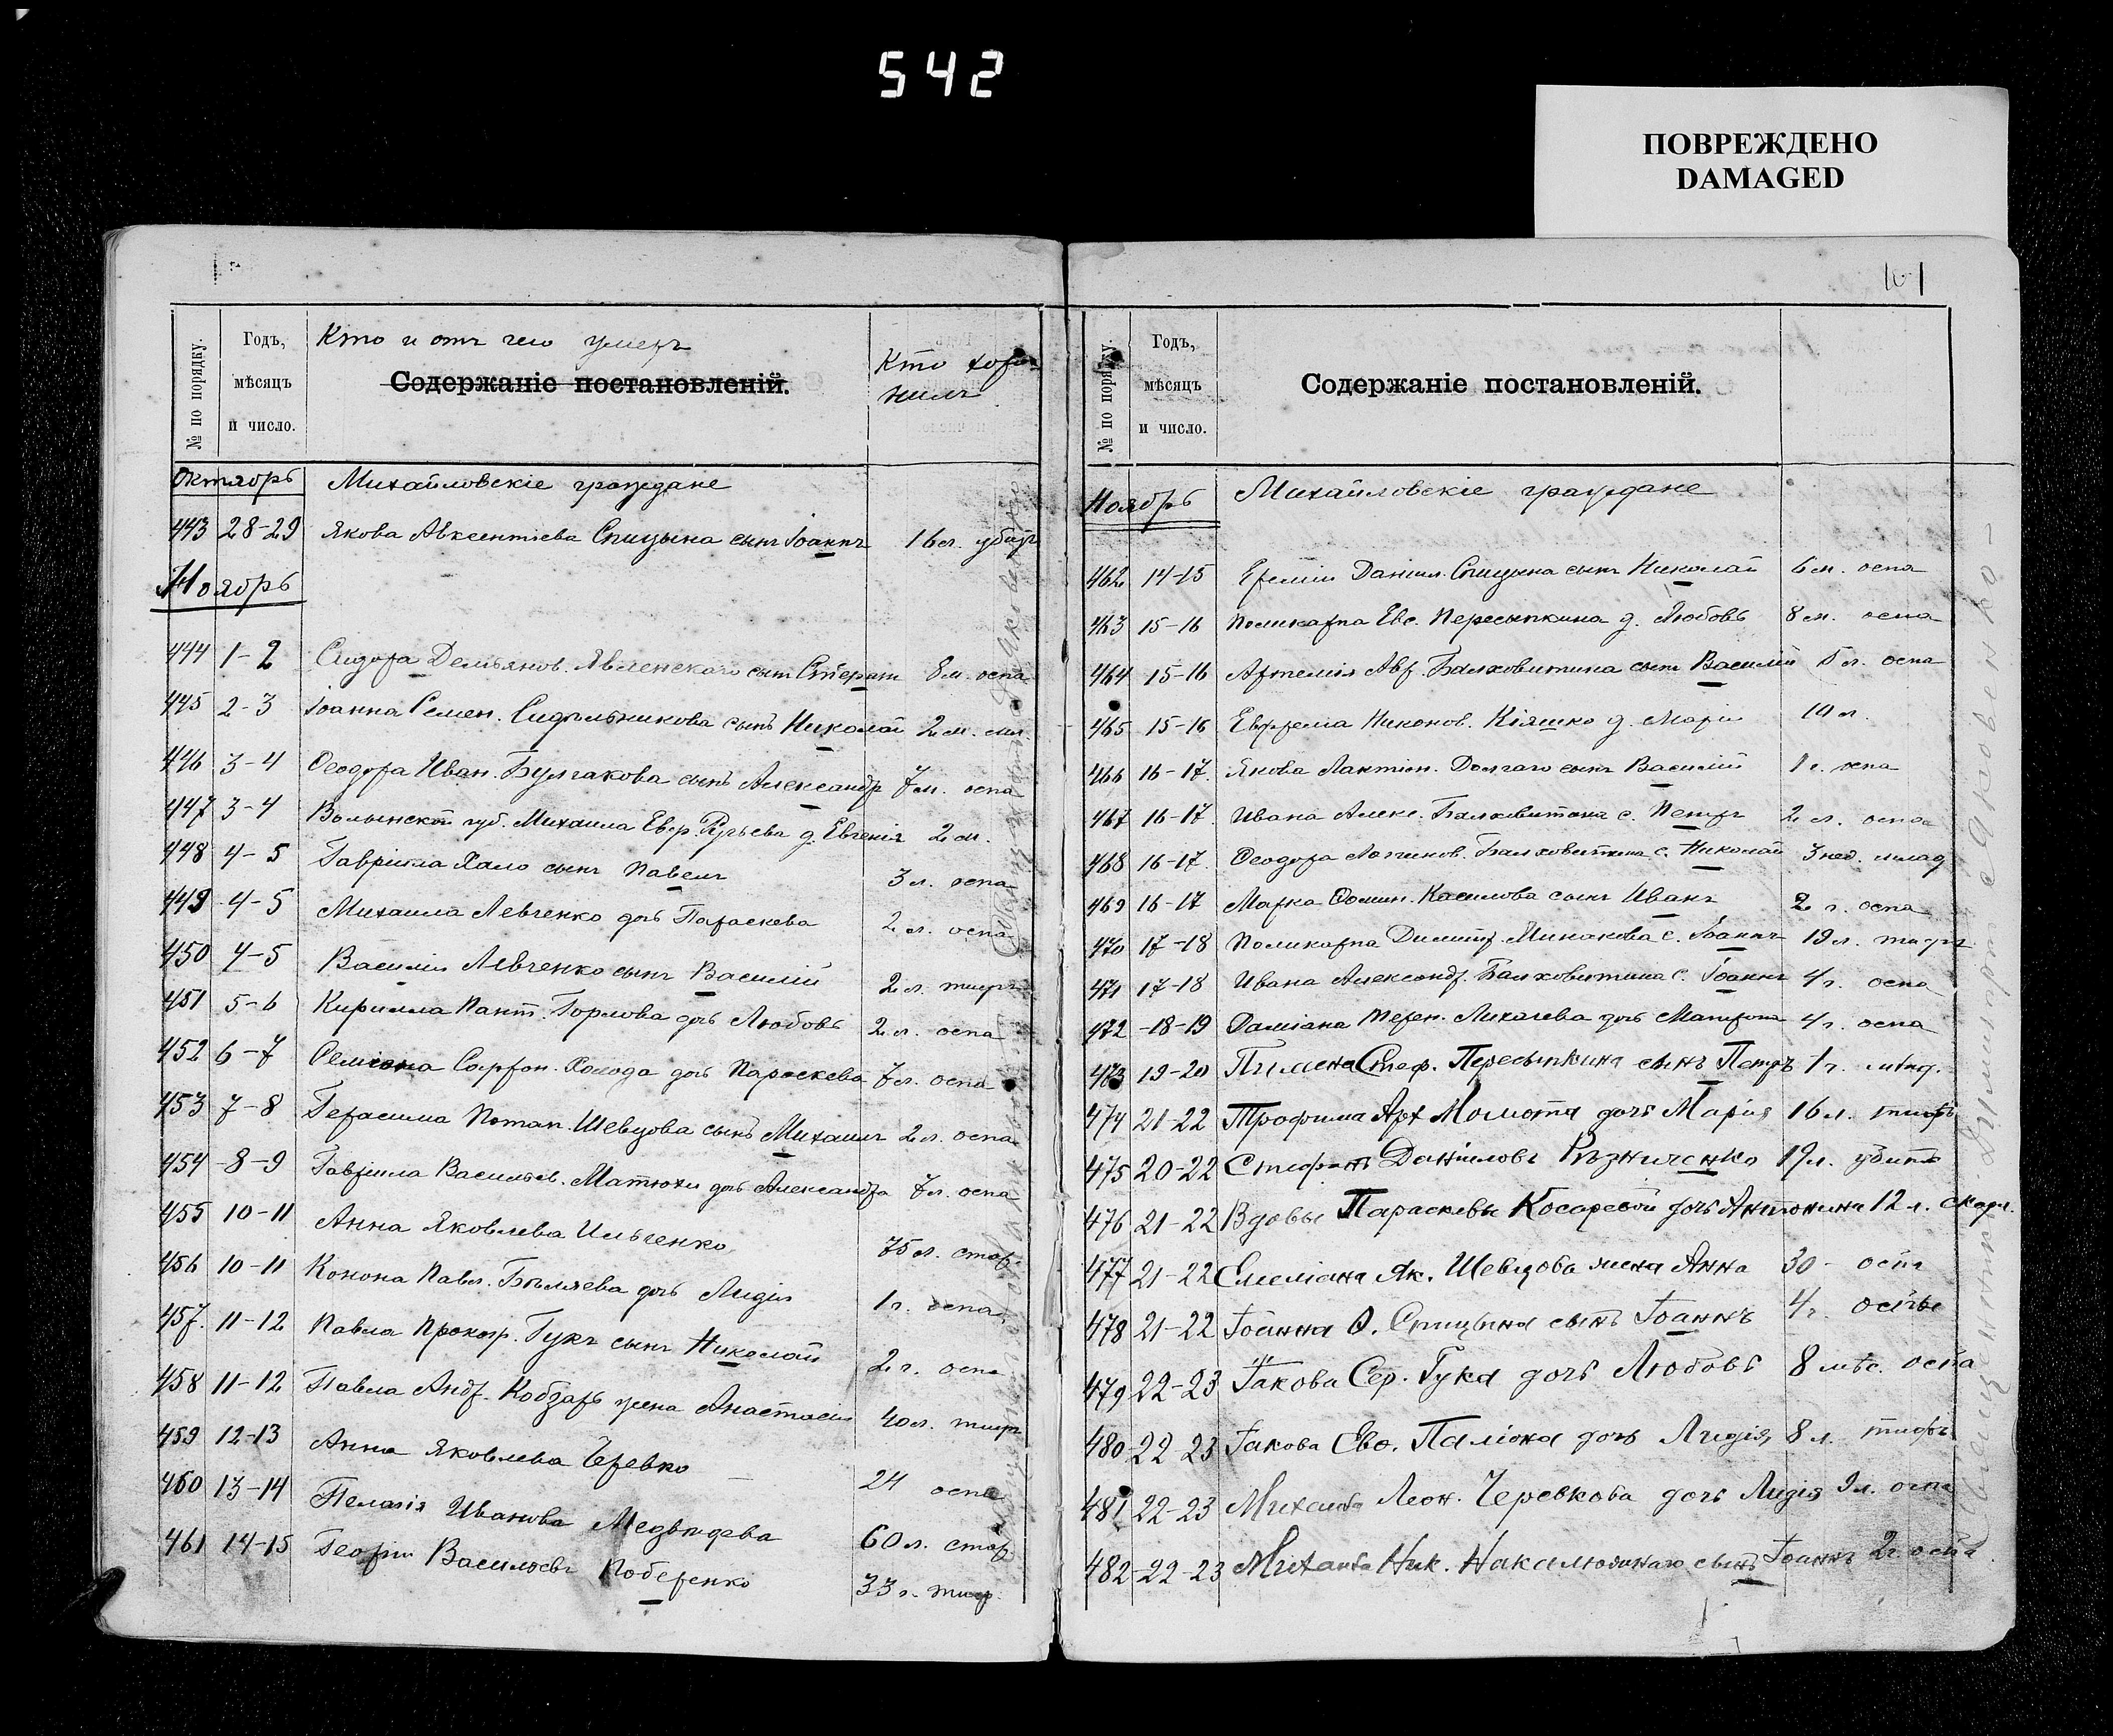 542
ПОВРЕЖДЕНО
DAMAGED
№ по порядку.
Годъ,
мѣсяцъ
и число.
Кто и отъ чего умеръ
Содержаніе постановленій.
Кто хоро-
нилъ
Октябрь Михайловскіе граждане
443 28-29 Якова Авксентіева Спицына сынъ Іоаннъ 16 л. убитъ
Ноябрь
444 1-2 Сидора Демьянов. Явленскаго сын 8 м. оспа
445 2-3 Іоанна Семен. Сидѣльникова сынъ Николай 2 м. мл.
446 3-4 Ѳеодора Иван. Булгакова сынъ Александр 7 м. оспа
447 3-4 Волынской губ. Михаила д. Евгенія 2 м.
448 4-5 Гавріила Хало сынъ Павелъ 3 л. оспа
449 4-5 Михаила Левченко дочь Параскева 2 л. оспа
450 4-5 Василія Левченко сынъ Василій 2 л. тифъ
451 5-6 Кирилла Пант. Горлова дочь Любовь 2 л. оспа
452 6-7 Семіона Холода дочь Параскева 7 л. оспа
453 7-8 Герасима Потап. Шевцова сынъ Михаилъ 2 л. оспа
454 8-9 Гавріила Васильев. Матюхи дочь Александра 7 л. оспа
455 10-11 Анна Яковлева Ильченко 75 л. стар.
456 10-11 Конона Павл. Бѣляева дочь Лидія 1 г. оспа
457. 11-12 Павла Прокоф. Гукъ сынъ Николай 2 г. оспа
458 11-12 Павла Андр. Кобзарь жена Анастасія 40 л. тифъ
459 12-13 Анна Яковлева Черевко 24 оспа
460 13-14 Пелагія Иванова Медвѣдева 60 л. стар.
461 14-15 Георгій Васильевъ Поберенко 33 г. тиф.
101
№ по порядку.
Годъ,
мѣсяцъ
и число.
Содержаніе постановленій.
Ноябрь Михайловскіе граждане
462 14-15 Ереміи Даніил. Спицына сынъ Николай 6 м. оспа
463 15-16 Поликарпа Евс. Пересыпкина д. Любовь 8 м. оспа
464 15-16 Артемія Балховитина сынъ Василій л. оспа
465 15-16 Никонов. Кіяшко д. Марія 10 л.
466 16-17. Якова Лактіон. Долгаго сынъ Василій 1 г. оспа
467 16-17. Ивана Алекс. Балховитина с. Петръ 2 л. оспа
468 16-17. Ѳеодора Логинов. Балховитина с. Николай 3 нед. млад
469 16-17 Марка Ѳомин. Касилова сынъ Иванъ 2 г. оспа
470 17-18 Поликарпа Димитр. Минакова с. Іоаннъ 19 л. тифъ
471 17-18 Ивана Александр. Балховитина с. Іоаннъ 4 г. оспа
472 18-19 Даміана Терен. Лихачева дочь Матрона 4 г. оспа
473 19-20 Пимена Стеф. Пересыпкина сынъ Петръ 1 г. млад.
474 21-22 Трофима Арх Момота дочь Марія 16 л. тифъ
475 20-22 Стефанъ Даніиловъ Рѣзниченко 19 л. убитъ
476 21-22 Вдовы Параскевы Косаревой дочь Антонина 12 л. скарл.
477 21-22 Емеліана Як. Шевцова жена Анна 30 - оспа
478 21-22 Іоанна Ѳ. Спицына сынъ Іоаннъ 4 г. оспы
479 22-23 Іакова Сер. Гука дочь Любовь 8 мѣс. оспа
480 22 23 Іакова Евѳ. Паліона дочь Лидія, 8 л. тифъ
481 22-23 Михаила Леон. Черевкова дочь Лидія 9 л. оспа
482 22-23 Михаила Ник. сынъ Іоаннъ 2 г. оспа
Священникъ Димитрій Яковенко